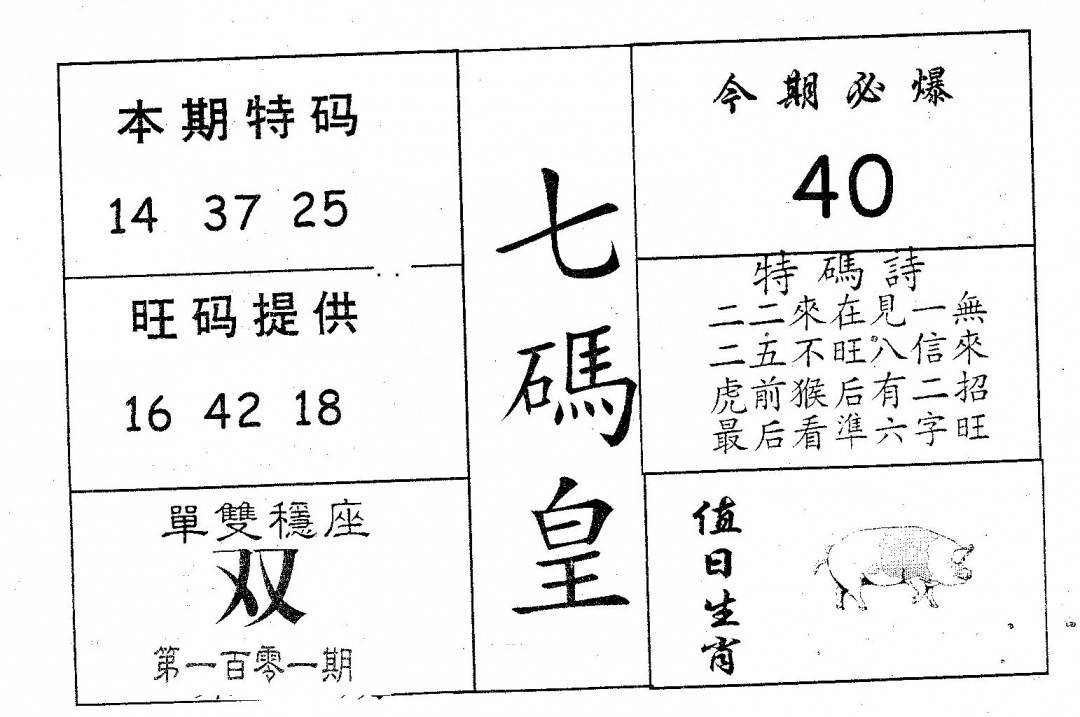 本期特码
14 37 25
旺码提供
16 42 18
單雙穩座
双
第一百零一期
七碼皇
今期必爆
40
特碼詩
二二來在見一無
二五不旺八信來
虎前猴后有二招
最后看準六字旺
值日生肖